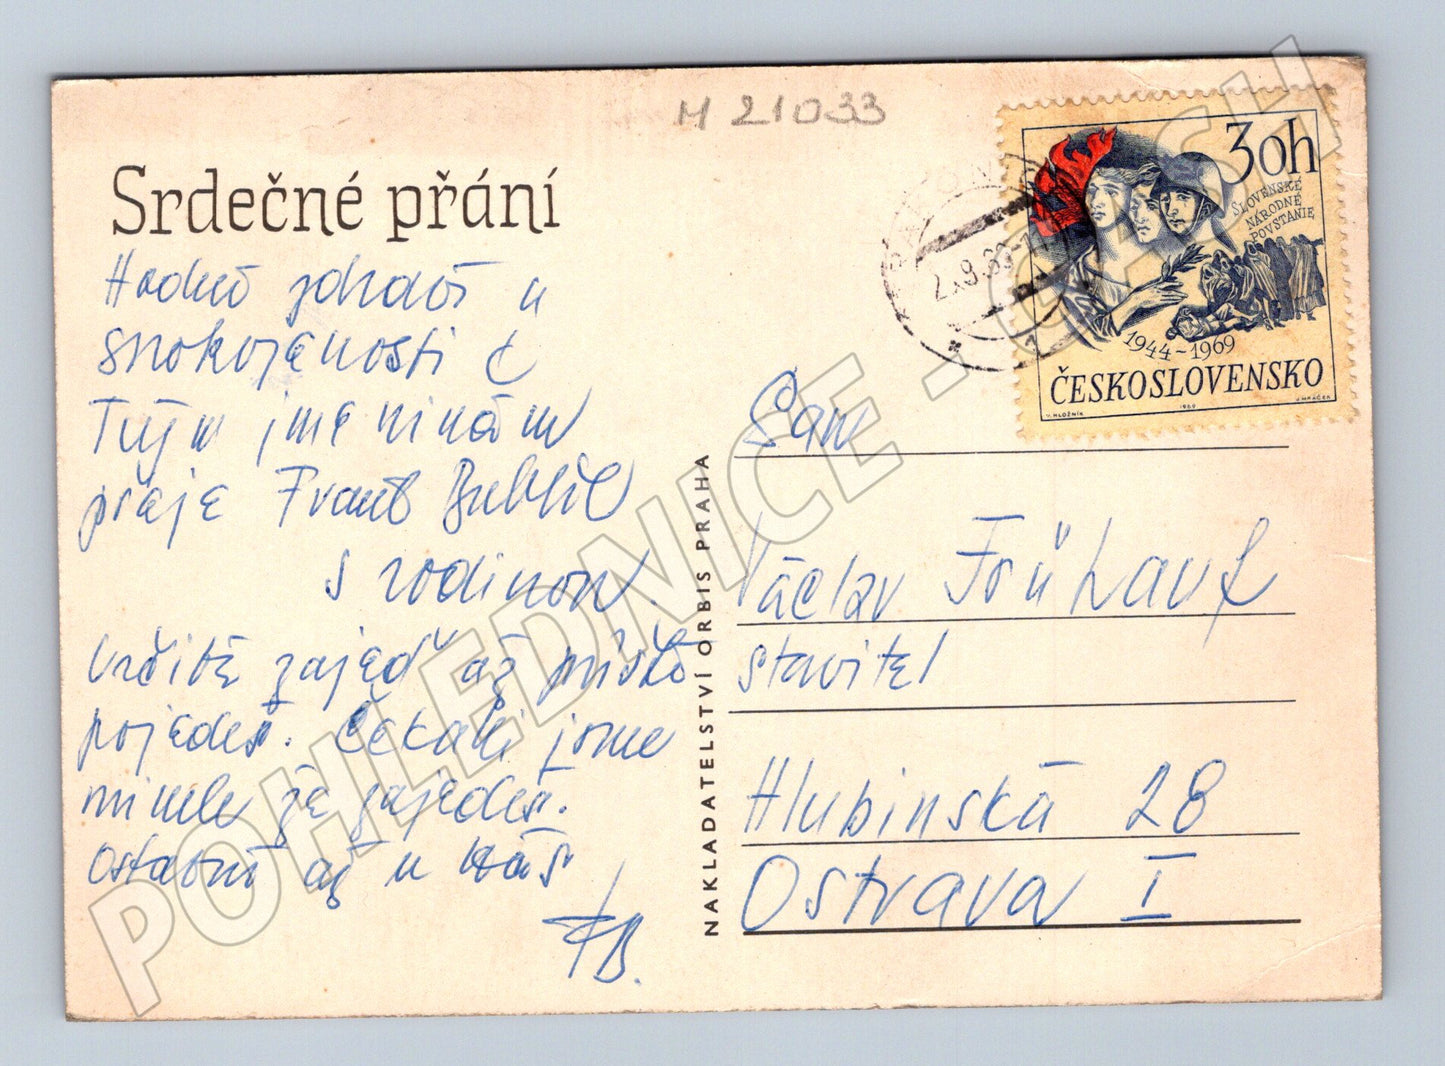 M 21033
Srdečné přání
Hodně zdraví a
spokojenosti k
Tvým jmeninám
přeje Frant Bublík
s rodinou.
Určitě zajeď až příště
pojedeš. Čekali jsme
minule že zajedeš.
Ostatní až u Vás
FB.
NAKLADATELSTVÍ ORBIS PRAHA
30h
SLOVENSKÉ
NÁRODNÉ
POVSTANIE
1944-1969
ČESKOSLOVENSKO
V. HLOŽNÍK
1969
J. MRÁČEK
Pan
Václav Frühauf
stavitel
Hlubinská 28
Ostrava I
POHLEDNICE - CASH